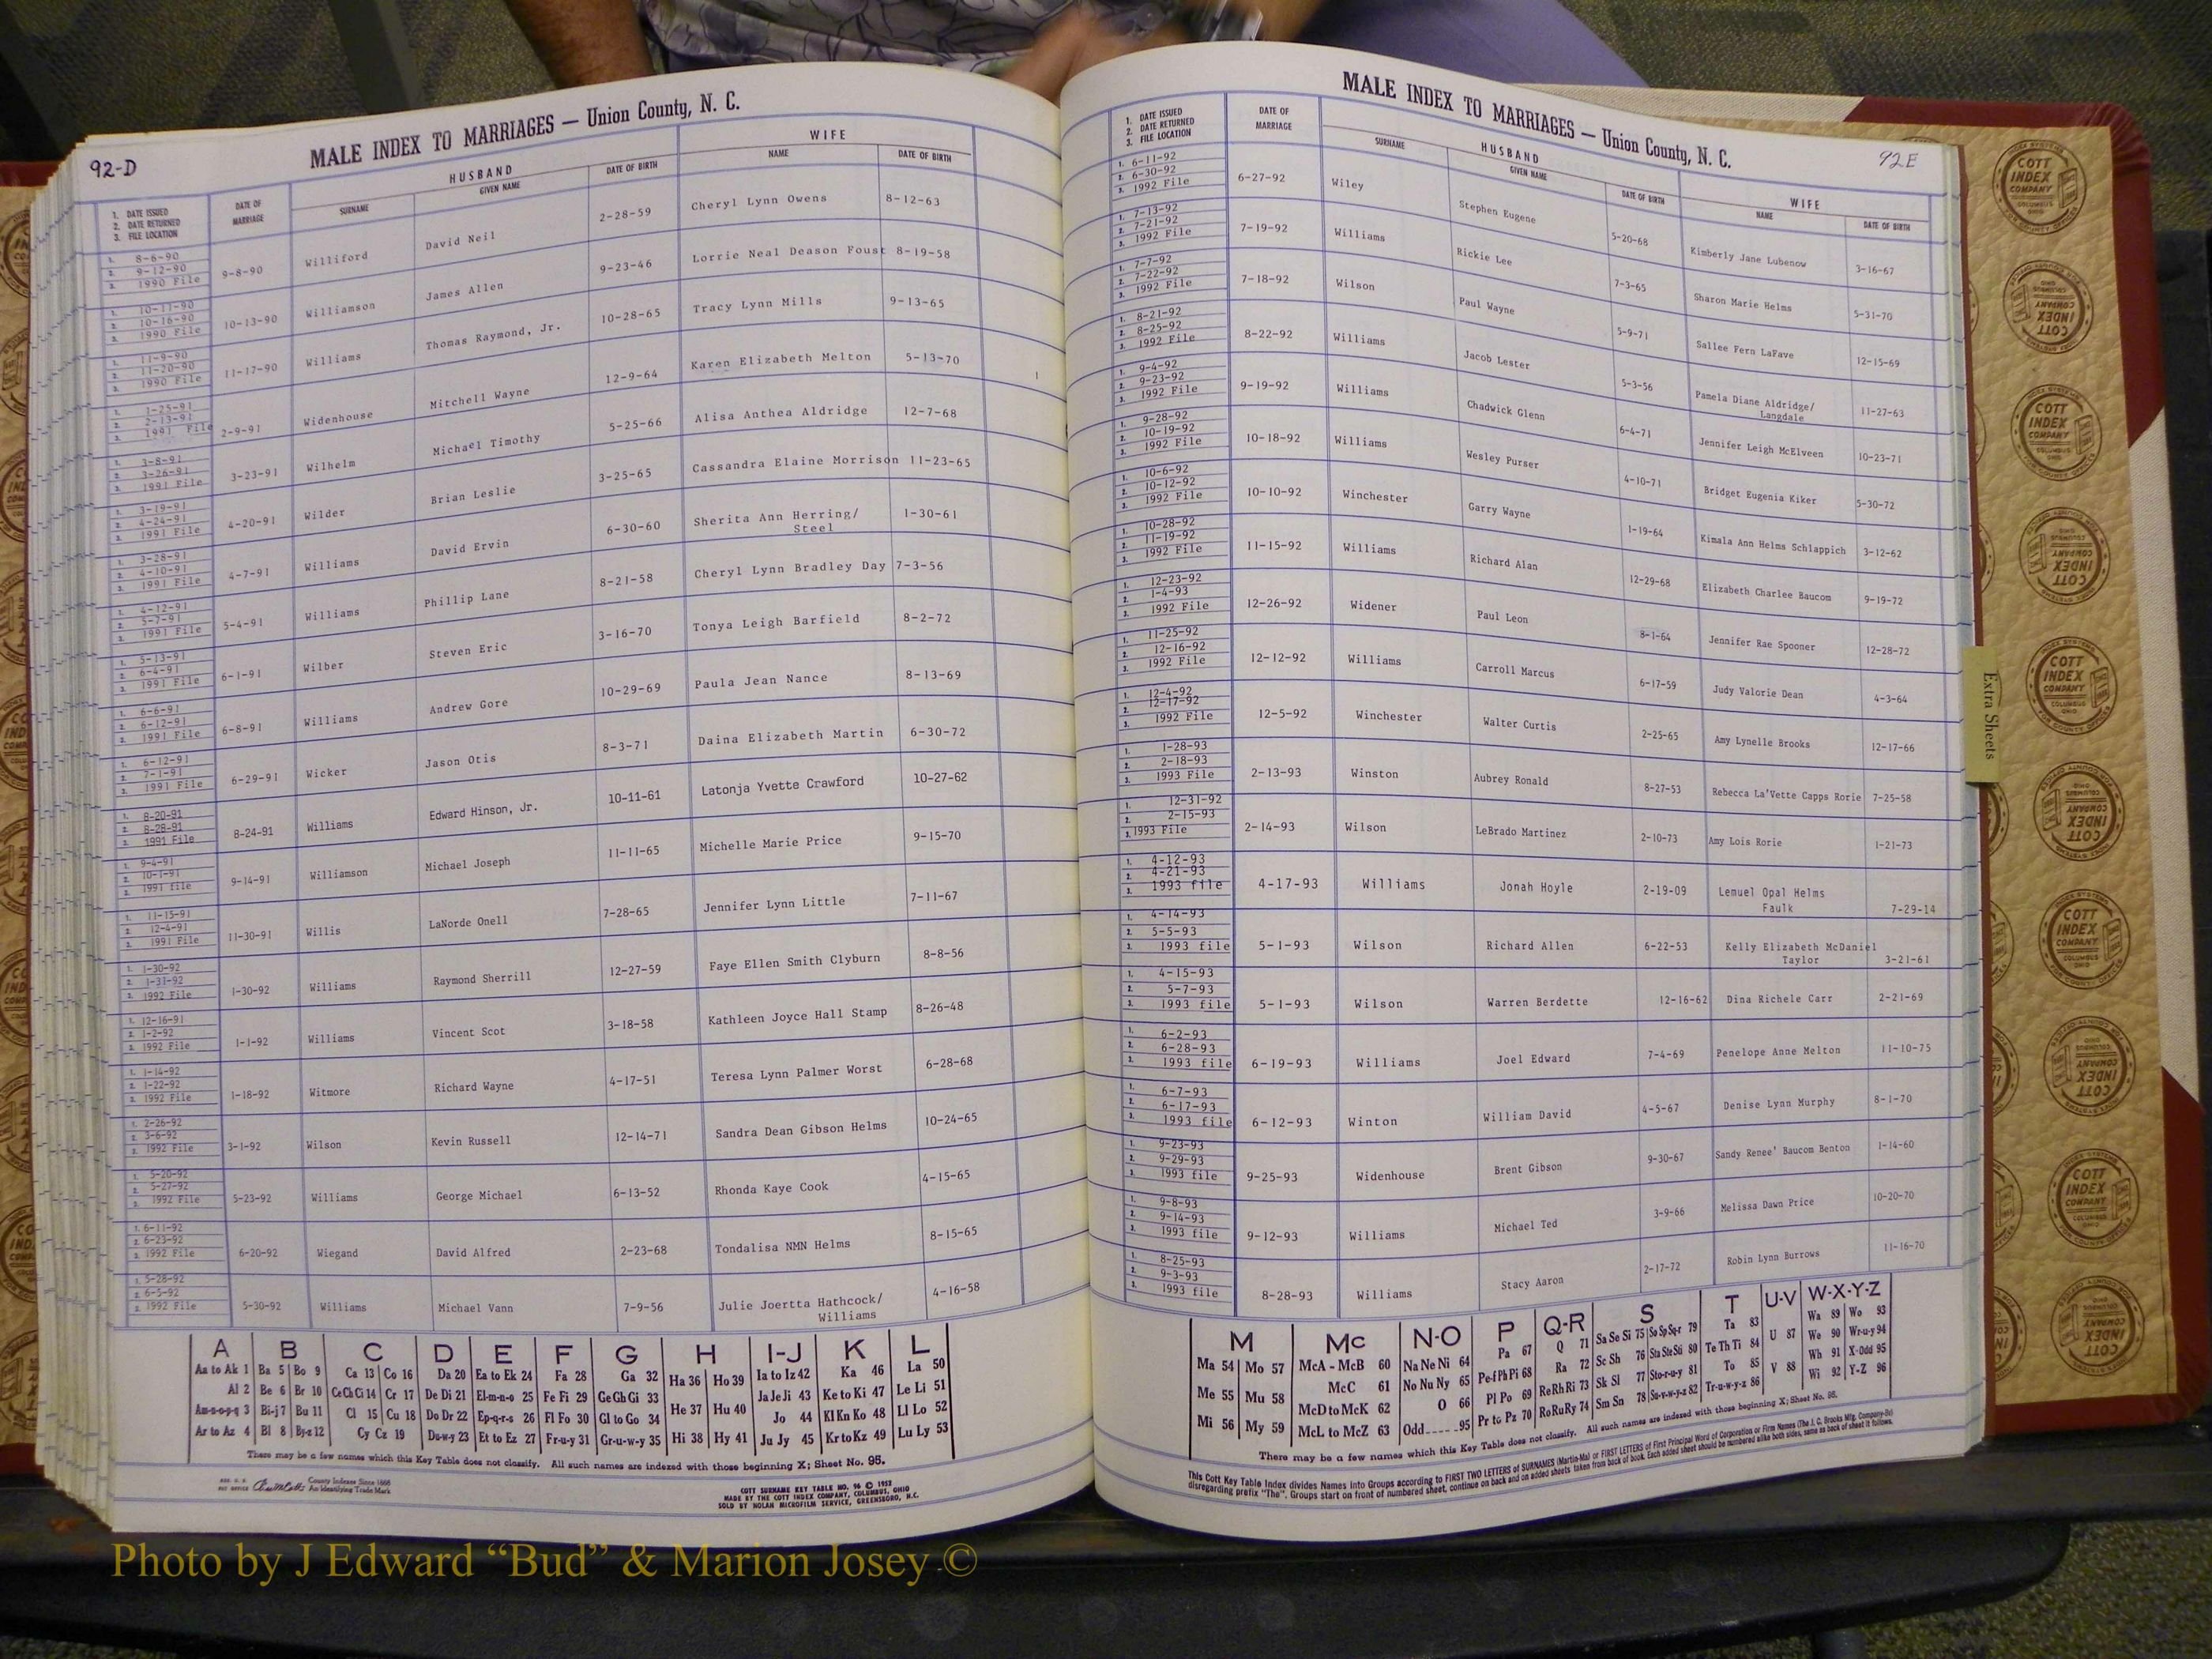 92-D
MALE INDEX TO MARRIAGES — Union County, N. C.
1. DATE ISSUED
2. DATE RETURNED
3. FILE LOCATION
DATE OF MARRIAGE
HUSBAND
SURNAME GIVEN NAME DATE OF BIRTH
WIFE
NAME DATE OF BIRTH
1. 8-6-90
2. 9-12-90
3. 1990 File
9-8-90 Williford David Neil 2-28-59 Cheryl Lynn Owens 8-12-63
1. 10-11-90
2. 10-16-90
3. 1990 File
10-13-90 Williamson James Allen 9-23-46 Lorrie Neal Deason Foust 8-19-58
1. 11-9-90
2. 11-20-90
3. 1990 File
11-17-90 Williams Thomas Raymond, Jr. 10-28-65 Tracy Lynn Mills 9-13-65
1. 1-25-91
2. 2-13-91
3. 1991 File
2-9-91 Widenhouse Mitchell Wayne 12-9-64 Karen Elizabeth Melton 5-13-70
1. 3-8-91
2. 3-26-91
3. 1991 File
3-23-91 Wilhelm Michael Timothy 5-25-66 Alisa Anthea Aldridge 12-7-68
1. 3-19-91
2. 4-24-91
3. 1991 File
4-20-91 Wilder Brian Leslie 3-25-65 Cassandra Elaine Morrison 11-23-65
1. 3-28-91
2. 4-10-91
3. 1991 File
4-7-91 Williams David Ervin 6-30-60 Sherita Ann Herring/ 1-30-61
Steel
1. 4-12-91
2. 5-7-91
3. 1991 File
5-4-91 Williams Phillip Lane 8-21-58 Cheryl Lynn Bradley Day 7-3-56
1. 5-13-91
2. 6-4-91
3. 1991 File
6-1-91 Wilber Steven Eric 3-16-70 Tonya Leigh Barfield 8-2-72
1. 6-6-91
2. 6-12-91
3. 1991 File
6-8-91 Williams Andrew Gore 10-29-69 Paula Jean Nance 8-13-69
1. 6-12-91
2. 7-1-91
3. 1991 File
6-29-91 Wicker Jason Otis 8-3-71 Daina Elizabeth Martin 6-30-72
1. 8-20-91
2. 8-28-91
3. 1991 File
8-24-91 Williams Edward Hinson, Jr. 10-11-61 Latonja Yvette Crawford 10-27-62
1. 9-4-91
2. 10-1-91
3. 1991 file
9-14-91 Williamson Michael Joseph 11-11-65 Michelle Marie Price 9-15-70
1. 11-15-91
2. 12-4-91
3. 1991 File
11-30-91 Willis LaNorde Onell 7-28-65 Jennifer Lynn Little 7-11-67
1. 1-30-92
2. 1-31-92
3. 1992 File
1-30-92 Williams Raymond Sherrill 12-27-59 Faye Ellen Smith Clyburn 8-8-56
1. 12-16-91
2. 1-2-92
3. 1992 File
1-1-92 Williams Vincent Scot 3-18-58 Kathleen Joyce Hall Stamp 8-26-48
1. 1-14-92
2. 1-22-92
3. 1992 File
1-18-92 Witmore Richard Wayne 4-17-51 Teresa Lynn Palmer Worst 6-28-68
1. 2-26-92
2. 3-6-92
3. 1992 File
3-1-92 Wilson Kevin Russell 12-14-71 Sandra Dean Gibson Helms 10-24-65
1. 5-20-92
2. 5-27-92
3. 1992 File
5-23-92 Williams George Michael 6-13-52 Rhonda Kaye Cook 4-15-65
1. 6-11-92
2. 6-23-92
3. 1992 File
6-20-92 Wiegand David Alfred 2-23-68 Tondalisa NMN Helms 8-15-65
1. 5-28-92
2. 6-5-92
3. 1992 File
5-30-92 Williams Michael Vann 7-9-56 Julie Joertta Hathcock/ 4-16-58
Williams
A B C D E F G H I-J K L
Aa to Ak 1 Ba 5 Bo 9 Ca 13 Co 16 Da 20 Ea to Ek 24 Fa 28 Ga 32 Ha 36 Ho 39 Ia to Iz 42 Ka 46 La 50
Al 2 Be 6 Br 10 Ce Ch Ci 14 Cr 17 De Di 21 El-m-n-o 25 Fe Fi 29 Ge Gh Gi 33 He 37 Hu 40 Ja Je Ji 43 Ke to Ki 47 Le Li 51
Am-n-o-p-q 3 Bi-j 7 Bu 11 Cl 15 Cu 18 Do Dr 22 Ep-q-r-s 26 Fl Fo 30 Gl to Go 34 Jo 44 Kl Kn Ko 48 Ll Lo 52
Ar to Az 4 Bl 8 By-z 12 Cy Cz 19 Du-w-y 23 Et to Ez 27 Fr-u-y 31 Gr-u-w-y 35 Hi 38 Hy 41 Ju Jy 45 Kr to Kz 49 Lu Ly 53
There may be a few names which this Key Table does not classify. All such names are indexed with those beginning X; Sheet No. 95.
County Indexes Since 1888
An Identifying Trade Mark
COTT SURNAME KEY TABLE NO. 96 © 1952
MADE BY THE COTT INDEX COMPANY, COLUMBUS, OHIO
SOLD BY NOLAN MICROFILM SERVICE, GREENSBORO, N.C.
92E
MALE INDEX TO MARRIAGES — Union County, N. C.
1. DATE ISSUED
2. DATE RETURNED
3. FILE LOCATION
DATE OF MARRIAGE
HUSBAND
SURNAME GIVEN NAME DATE OF BIRTH
WIFE
NAME DATE OF BIRTH
1. 6-11-92
2. 6-30-92
3. 1992 File
6-27-92 Wiley Stephen Eugene 5-20-68 Kimberly Jane Lubenow 3-16-67
1. 7-13-92
2. 7-21-92
3. 1992 File
7-19-92 Williams Rickie Lee 7-3-65 Sharon Marie Helms 5-31-70
1. 7-7-92
2. 7-22-92
3. 1992 File
7-18-92 Wilson Paul Wayne 5-9-71 Sallee Fern LaFave 12-15-69
1. 8-21-92
2. 8-25-92
3. 1992 File
8-22-92 Williams Jacob Lester 5-3-56 Pamela Diane Aldridge/ 11-27-63
Langdale
1. 9-4-92
2. 9-23-92
3. 1992 File
9-19-92 Williams Chadwick Glenn 6-4-71 Jennifer Leigh McElveen 10-23-71
1. 9-28-92
2. 10-19-92
3. 1992 File
10-18-92 Williams Wesley Purser 4-10-71 Bridget Eugenia Kiker 5-30-72
1. 10-6-92
2. 10-12-92
3. 1992 File
10-10-92 Winchester Garry Wayne 1-19-64 Kimala Ann Helms Schlappich 3-12-62
1. 10-28-92
2. 11-19-92
3. 1992 File
11-15-92 Williams Richard Alan 12-29-68 Elizabeth Charlee Baucom 9-19-72
1. 12-23-92
2. 1-4-93
3. 1992 File
12-26-92 Widener Paul Leon 8-1-64 Jennifer Rae Spooner 12-28-72
1. 11-25-92
2. 12-16-92
3. 1992 File
12-12-92 Williams Carroll Marcus 6-17-59 Judy Valorie Dean 4-3-64
1. 12-4-92
2. 12-17-92
3. 1992 File
12-5-92 Winchester Walter Curtis 2-25-65 Amy Lynelle Brooks 12-17-66
1. 1-28-93
2. 2-18-93
3. 1993 File
2-13-93 Winston Aubrey Ronald 8-27-53 Rebecca La'Vette Capps Rorie 7-25-58
1. 12-31-92
2. 2-15-93
3. 1993 File
2-14-93 Wilson LeBrado Martinez 2-10-73 Amy Lois Rorie 1-21-73
1. 4-12-93
2. 4-21-93
3. 1993 file
4-17-93 Williams Jonah Hoyle 2-19-09 Lemuel Opal Helms
Faulk 7-29-14
1. 4-14-93
2. 5-5-93
3. 1993 file
5-1-93 Wilson Richard Allen 6-22-53 Kelly Elizabeth McDaniel
Taylor 3-21-61
1. 4-15-93
2. 5-7-93
3. 1993 file
5-1-93 Wilson Warren Berdette 12-16-62 Dina Richele Carr 2-21-69
1. 6-2-93
2. 6-28-93
3. 1993 file
6-19-93 Williams Joel Edward 7-4-69 Penelope Anne Melton 11-10-75
1. 6-7-93
2. 6-17-93
3. 1993 file
6-12-93 Winton William David 4-5-67 Denise Lynn Murphy 8-1-70
1. 9-23-93
2. 9-29-93
3. 1993 file
9-25-93 Widenhouse Brent Gibson 9-30-67 Sandy Renee' Baucom Benton 1-14-60
1. 9-8-93
2. 9-14-93
3. 1993 file
9-12-93 Williams Michael Ted 3-9-66 Melissa Dawn Price 10-20-70
1. 8-25-93
2. 9-3-93
3. 1993 file
8-28-93 Williams Stacy Aaron 2-17-72 Robin Lynn Burrows 11-16-70
M Mc N-O P Q-R S T U-V W-X-Y-Z
Ma 54 Mo 57 McA - McB 60 Na Ne Ni 64 Pa 67 Q 71 Sa Se Si 75 So Sp Sq-r 79 Ta 83 U 87 Wa 89 Wo 93
McC 61 No Nu Ny 65 Pe-f Ph Pi 68 Ra 72 Sc Sh 76 Sta Ste Sti 80 Te Th Ti 84 We 90 Wr-u-y 94
Me 55 Mu 58 McD to McK 62 O 66 Pl Po 69 Re Rh Ri 73 Sk Sl 77 Sto-r-u-y 81 To 85 V 88 Wh 91 X-Odd 95
Mi 56 My 59 McL to McZ 63 Odd 95 Pr to Pz 70 Ro Ru Ry 74 Sm Sn 78 Su-v-w-y-z 82 Tr-u-w-y-z 86 Wi 92 Y-Z 96
There may be a few names which this Key Table does not classify. All such names are indexed with those beginning X; Sheet No. 95.
This Cott Key Table Index divides Names into Groups according to FIRST TWO LETTERS of SURNAMES (Martin-Ma) or FIRST LETTERS of First Principal Word of Corporation or Firm Names (The J. C. Brooks Mfg. Company-Br)
disregarding prefix "The". Groups start on front of numbered sheet, continue on back and on added sheets taken from back of book. Each added sheet should be numbered alike both sides, same as back of sheet it follows.
Extra Sheets
COTT INDEX COMPANY COLUMBUS OHIO
Photo by J Edward “Bud” & Marion Josey ©